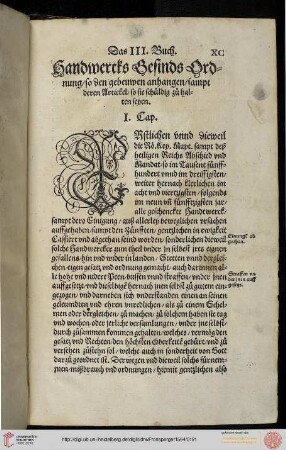 Das III. Buch.
XC
Handwercks Gesinds Ord-
nung/so den gebeuwen anhangen/sampt
deren Artickel/so sie schuldig zu hal-
ten seyen.
I. Cap.
Erstlichen vnnd dieweil
die Rö. Key. Mayt. sampt deß
heiligen Reichs Abschied vnd
Mandat so im Tausent fünff-
hundert vnnd im dreissigsten/
weiter hernach klerlichen im
acht vnd viertzigsten/folgends
im neun vñ fünfftzigsten jar
alle geschenckte Handwerck
sampt dero Einigung/auß allerley beweglichen vrsachen
auffgehaben/sampt den Zünfften/gentzlichen in ewigkeit
Cassiert vnd abgethan seind worden/sonderlichen
solche Handwercker zum theil wider in selbst jres eignen
gefallens/hin vnd wider in landen/Stetten vnnd derglei-
chen eigen gesatz vnd ordnung gemacht/auch dar inen al-
lerhand
auffgesetzt/vnd dieselbige hernach inen selbst zu gutem ein-
gezogen/vnd darneben sich vnderstanden einen an seinen
geleumbden vnd ehren
nen oder vordinger/zu machen/zu solchem haben sie tag
vnd wochen/oder jerliche versamlungen/vnder jne selbst
durch zusammen kommen gehalten/welches/vermög den
gesatz vnd Rechten den höchsten Oberkeit gebürt/vnd zu
versehen zustehn sol/welche auch in sonderheit von Gott
dar zu geordnet ist. Derwegen vnd dieweil solchs für nem-
men/miß breuch vnd ordnungen/hiemit gentzlichen also
http://digi.ub.uni-heidelberg.de/diglit/drwFronsperger1564/0191